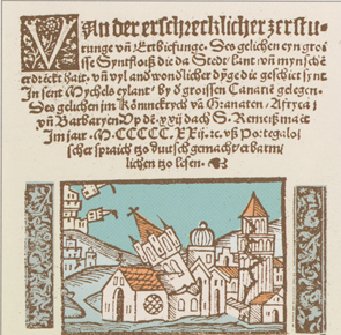 VAn der erschrecklicher zerstu-
runge vñ Ertbisunge. Des gelichen eyn groi
sse Syntfloiß die da Stede lant vñ mynschē
erdrēckt hait. vñ vyl and wondlicher dyge die geschiet synt
In sent Mychels eylant. by d groissen Canarie gelegen.
Des gelichen im Kōnnckrych vā Granaten / Affryca /
vñ Barbaryen Vp dē. xxij dach S. Remeiß maēt
Im jair. M. CCCCC. XXij. rc. vß Portegaloi
scher spraich tzo duutsch gemacht. erbarm
lichen tzo lesen.